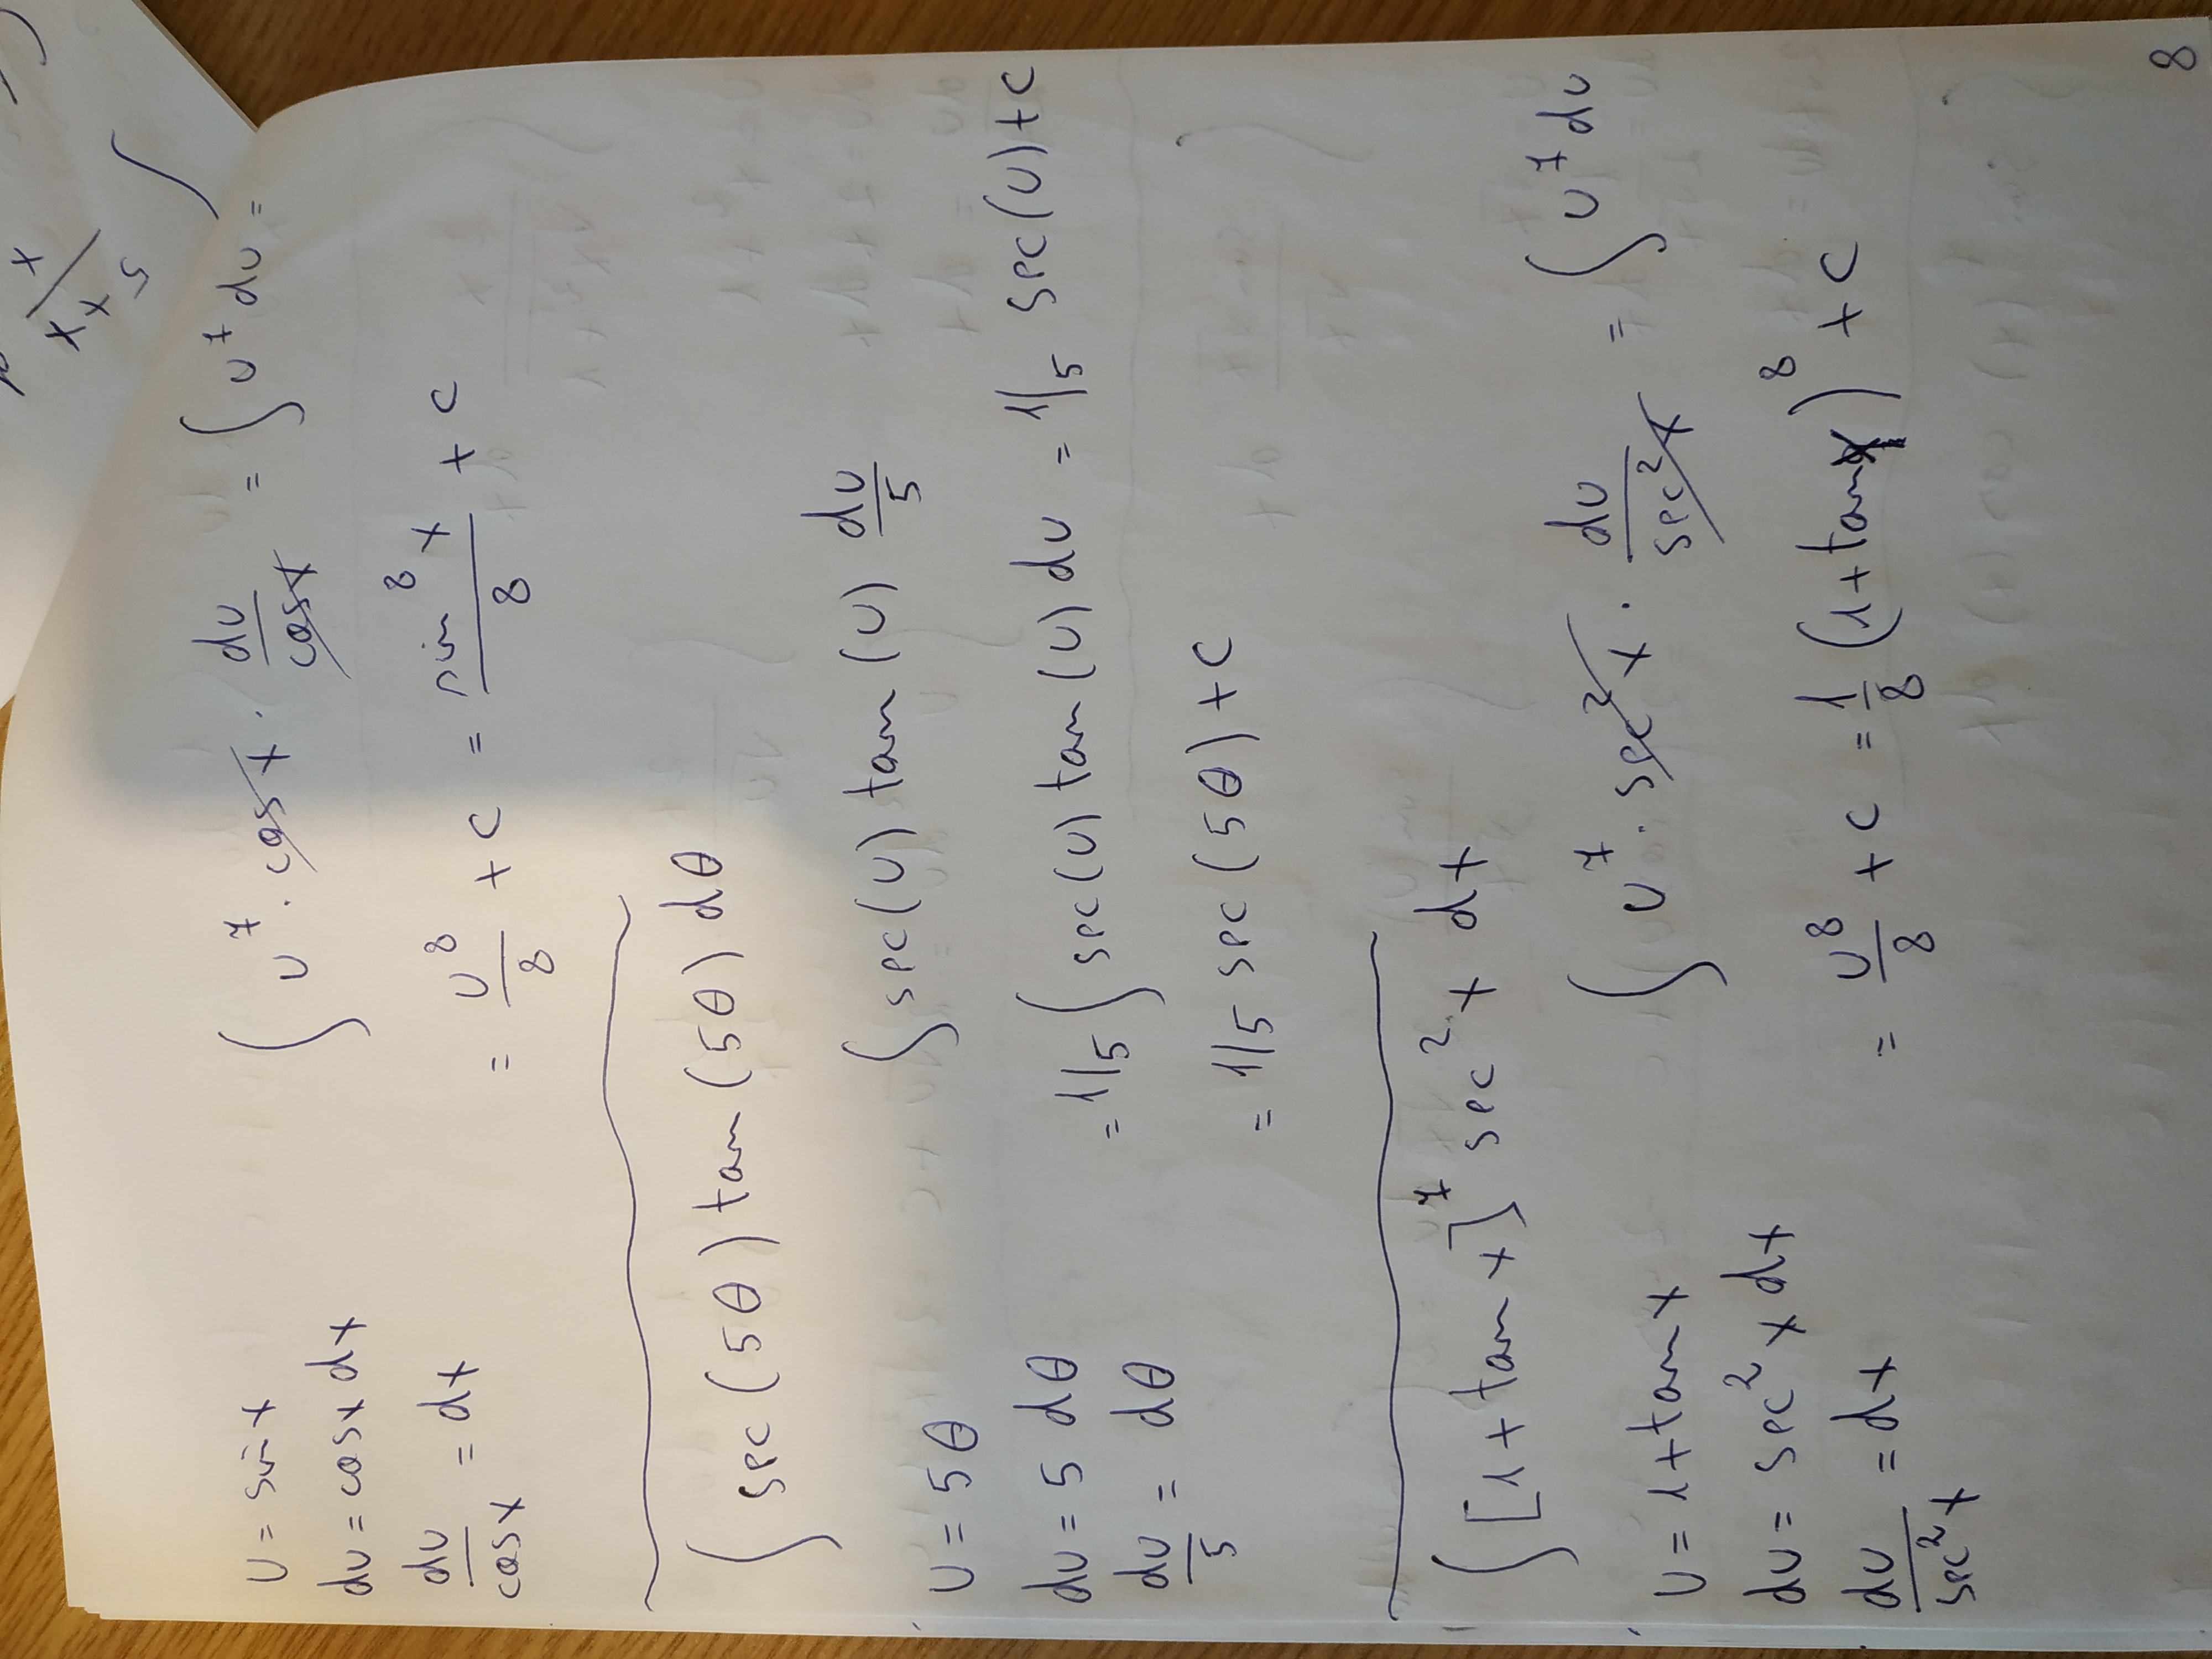 u = sin x
du = cosx dx
du/cosx = dx
∫ u^7 · cos x · du/cosx = ∫ u^7 du =
= u^8/8 + c = sin^8 x/8 + c
∫ sec(5θ) tan(5θ) dθ
u = 5θ
du = 5 dθ
du/5 = dθ
∫ sec(u) tan(u) du/5
= 1/5 ∫ sec(u) tan(u) du = 1/5 sec(u) + c
= 1/5 sec(5θ) + c
∫ [1 + tan x]^7 sec^2 x dx
u = 1 + tan x
du = sec^2 x dx
du/sec^2 x = dx
∫ u^7 · sec^2 x · du/sec^2 x = ∫ u^7 du
= u^8/8 + c = 1/8 (1 + tan x)^8 + c
8